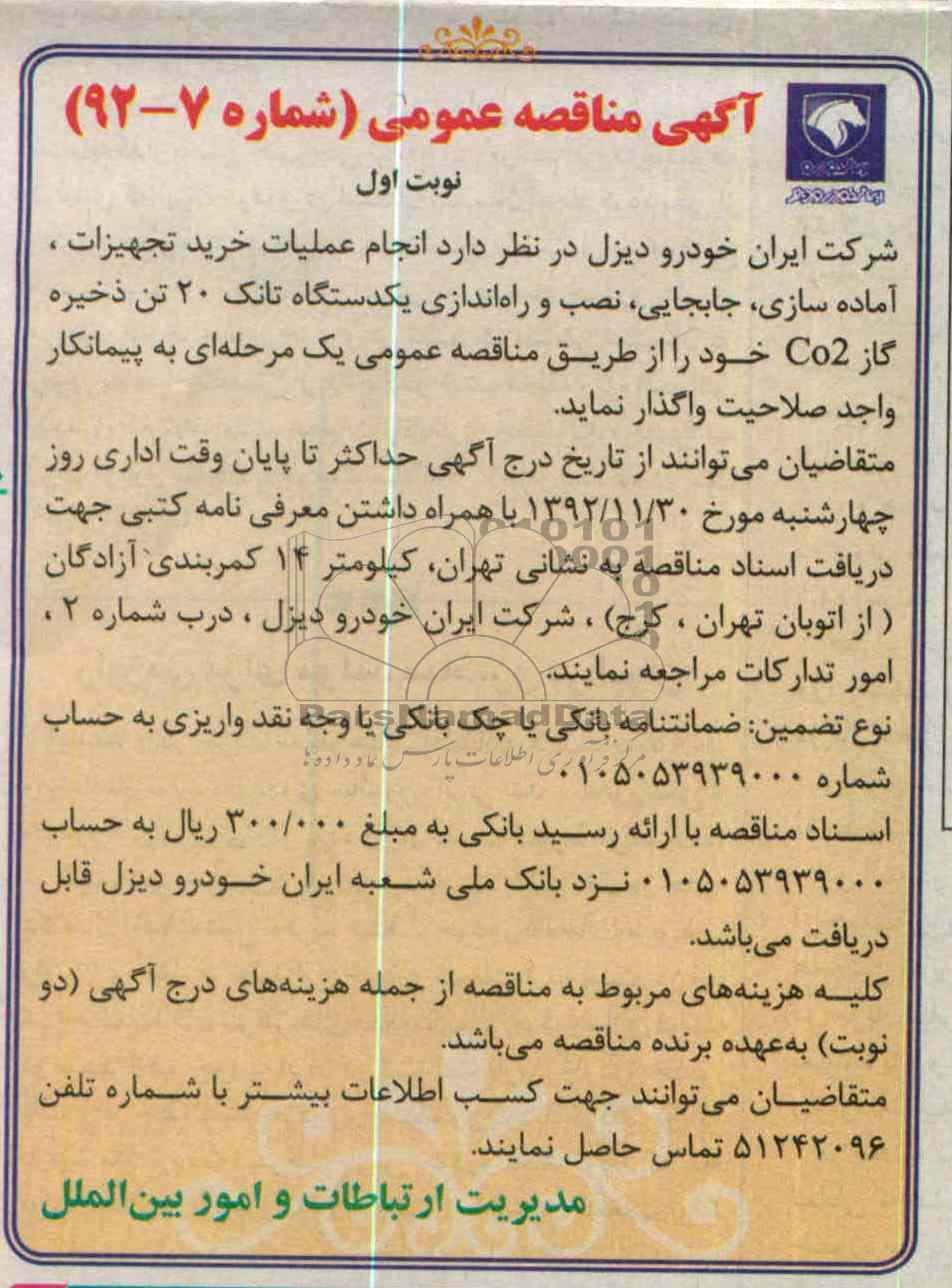 آگهی مناقصه عمومی (شماره ۷-۹۲)
ایران خودرو دیزل
نوبت اول
شرکت ایران خودرو دیزل در نظر دارد انجام عملیات خرید تجهیزات ،
آماده سازی، جابجایی، نصب و راه‌اندازی یکدستگاه تانک ۲۰ تن ذخیره
گاز Co2 خود را از طریق مناقصه عمومی یک مرحله‌ای به پیمانکار
واجد صلاحیت واگذار نماید.
متقاضیان می‌توانند از تاریخ درج آگهی حداکثر تا پایان وقت اداری روز
چهارشنبه مورخ ۱۳۹۲/۱۱/۳۰ با همراه داشتن معرفی نامه کتبی جهت
دریافت اسناد مناقصه به نشانی تهران، کیلومتر ۱۴ کمربندی آزادگان
( از اتوبان تهران ، کرج) ، شرکت ایران خودرو دیزل ، درب شماره ۲ ،
امور تدارکات مراجعه نمایند.
نوع تضمین: ضمانتنامه بانکی یا چک بانکی یا وجه نقد واریزی به حساب
شماره ۰۱۰۵۰۵۳۹۳۹۰۰۰
اسناد مناقصه با ارائه رسید بانکی به مبلغ ۳۰۰/۰۰۰ ریال به حساب
۰۱۰۵۰۵۳۹۳۹۰۰۰ نزد بانک ملی شعبه ایران خودرو دیزل قابل
دریافت می‌باشد.
کلیه هزینه‌های مربوط به مناقصه از جمله هزینه‌های درج آگهی (دو
نوبت) به‌عهده برنده مناقصه می‌باشد.
متقاضیان می‌توانند جهت کسب اطلاعات بیشتر با شماره تلفن
۵۱۲۴۲۰۹۶ تماس حاصل نمایند.
مدیریت ارتباطات و امور بین‌الملل
ParsNamadData
مرکز فرآوری اطلاعات پارس نماد داده ها